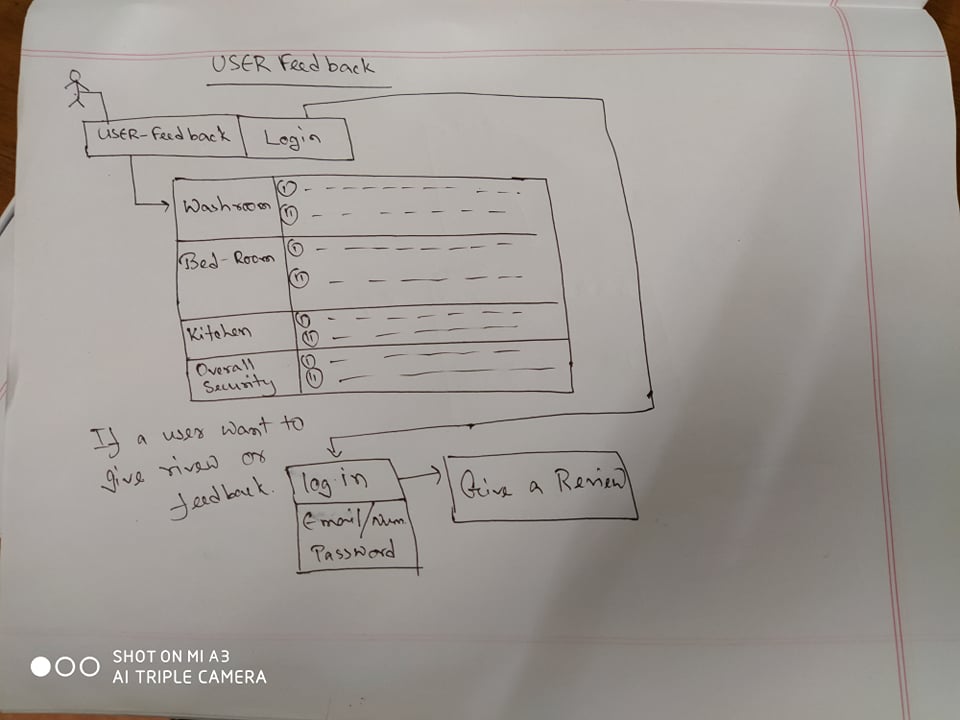 USER Feedback
USER-Feedback
Login
Washroom
Bed-Room
Kitchen
Overall
Security
If a user want to
give rivew or
feedback.
log in
Email/Num.
Password
Give a Review
SHOT ON MI A3
AI TRIPLE CAMERA